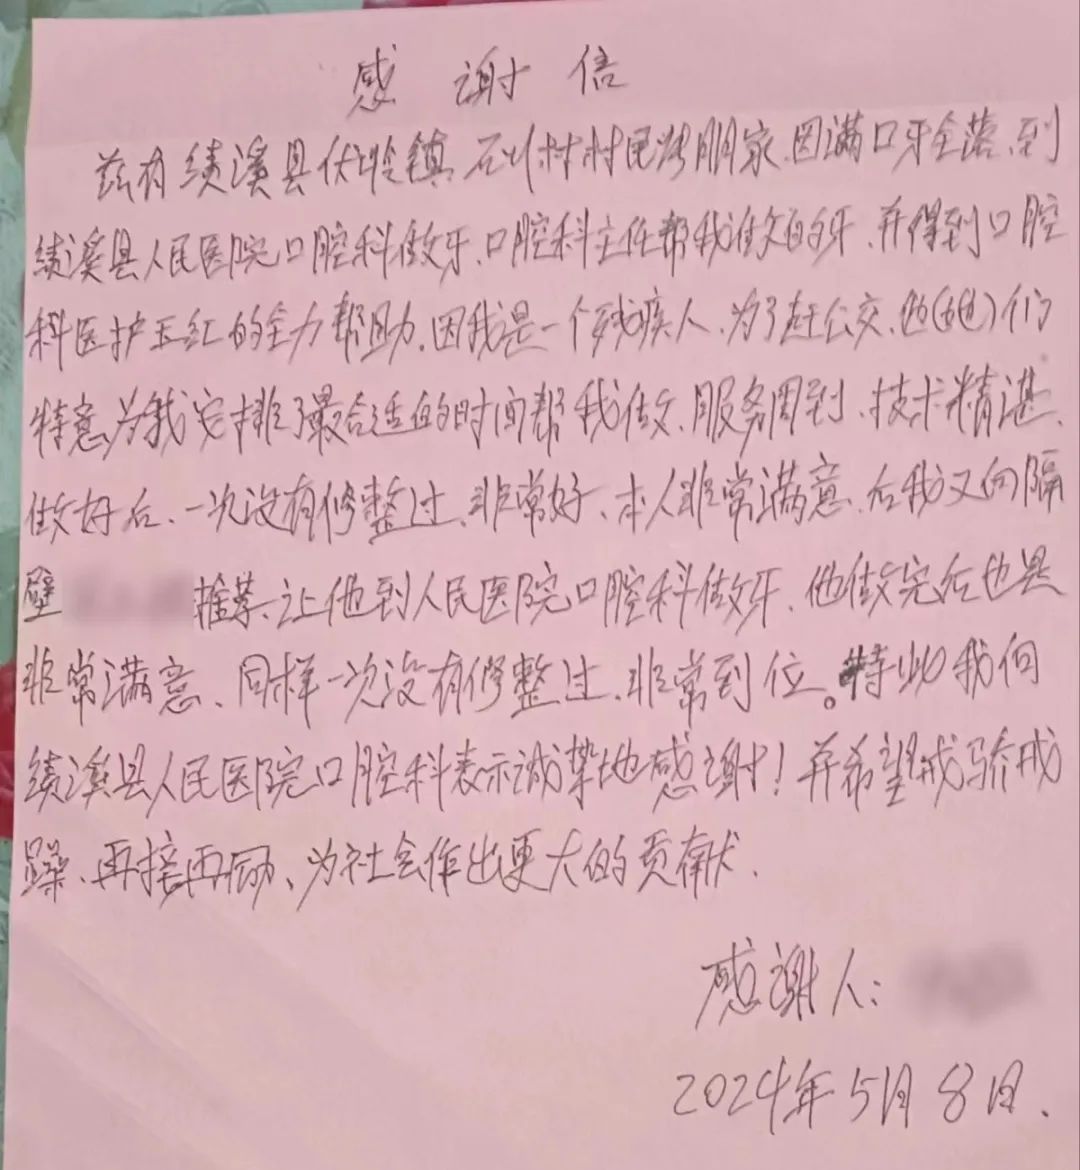 感谢信
兹有绩溪县伏岭镇石川村村民 朋家、因满口牙全落、到
绩溪县人民医院口腔科做牙、口腔科主任帮我做的牙、并得到口腔
科医护王红的全力帮助、因我是一个残疾人、为了赶公交、他(她)们
特意为我安排了最合适的时间帮我做、服务周到、技术精湛、
做好后、一次没有修整过、非常好、本人非常满意、后我又向隔
壁 推荐、让他到人民医院口腔科做牙、他做完后也是
非常满意、同样一次没有修整过、非常到位。特此我向
绩溪县人民医院口腔科表示诚挚地感谢!并希望戒骄戒
躁、再接再励、为社会作出更大的贡献.
感谢人:
2024年5月8日.